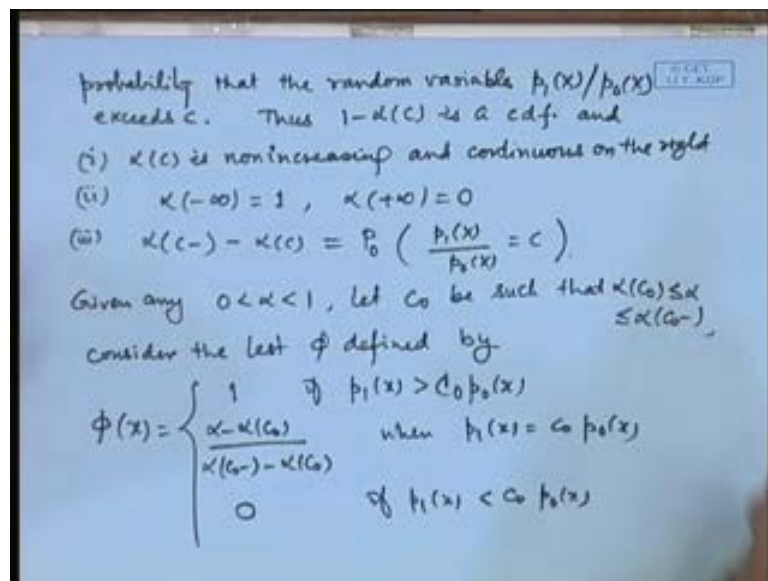 probability that the random variable p₁(X)/p₀(X)
exceeds c. Thus 1-α(c) is a cdf. and
(i) α(c) is nonincreasing and continuous on the right
(ii) α(-∞) = 1 , α(+∞) = 0
(iii) α(c-) - α(c) = P₀ ( p₁(X)/p₀(X) = c )
Given any 0<α<1, let c₀ be such that α(c₀) ≤ α
≤ α(c₀-),
consider the test φ defined by
φ(x) = { 1 if p₁(x) > c₀ p₀(x)
(α-α(c₀))/(α(c₀-)-α(c₀)) when p₁(x) = c₀ p₀(x)
0 if p₁(x) < c₀ p₀(x)